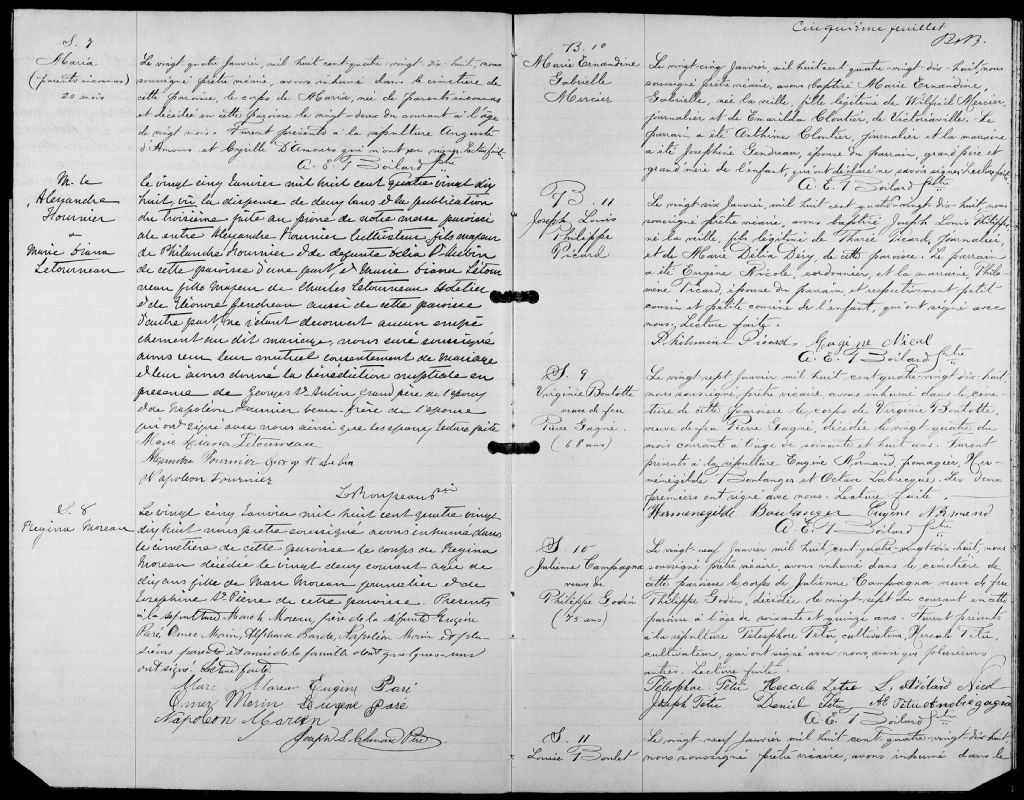 S. 7
Maria
(parents inconnus)
20 mois
Le vingt quatre Janvier, mil huit cent quatre-vingt-dix-huit, nous
soussigné prêtre vicaire, avons inhumé dans le cimetière de
cette paroisse, le corps de Maria, née de parents inconnus
et décédée en cette paroisse le vingt-deux du courant à l'âge
de vingt mois. Furent présents à la sépulture Auguste
D'Amours et Cyrille D'Amours qui n'ont su signer. Lecture faite.
A. E. T. Boilard ptre
M. 6e
Alexandre
Fournier
&
Marie Diana
Letourneau
Le vingt cinq Janvier mil huit cent quatre vingt dix
huit, vu la dispense de deux bans et la publication
du troisième faite au prône de notre messe paroissi
ale entre Alexandre Fournier cultivateur fils majeur
de Philandre Fournier & de defunte Délia St Aubin
de cette paroisse d'une part, & Marie Diana Létour
neau fille majeur de Charles Letourneau hotelier
& de Eléonore Gendreau aussi de cette paroisse
d'autre part, ne s'étant decouvert aucun empê
chement au dit mariage, nous curé soussigné
avons reçu leur mutuel consentement de mariage
et leur avons donné la bénédiction nuptiale en
presence de Georges St Aubin grand père de l'epoux
& de Napoleon Fournier beau-frère de l'epouse
qui ont signé avec nous ainsi que les epoux, lecture faite
Marie Diana Létourneau
Alexandre Fournier George St Aubin
Napoleon Fournier
S. 8
Regina Moreau
Le vingt cinq Janvier mil huit cent quatre vingt
dix huit nous pretre soussigné avons inhumé dans
le cimetière de cette paroisse le corps de Regina
Moreau décédée le vingt deux courant agée de
dix ans fille de Marc Moreau journalier & de
Josephine St Pierre de cette paroisse. Presents
à la sépulture March Moreau, père de la défunte Eugene
Paré, Omer Morin, Alphonse Napoléon Morin & plu-
sieurs parents et amis de la famille dont quelques-uns
ont signé. Lecture faite.
Marc Moreau Eugène Paré
Omer Morin Eugene Paré
Napoleon Morin
Joseph S. Chenard Ptre
Cinquième feuillet
B. 10
Marie Ernandine
Gabrielle
Mercier
Le vingt-cinq Janvier, mil huit cent quatre-vingt-dix-huit, nous
soussigné prêtre vicaire, avons baptisé Marie Ernandine,
Gabrielle, née la veille, fille légitime de Wilfrid Mercier,
journalier et de Emarilda Cloutier, de Victoriaville. Le
parrain a été Anthime Cloutier, journalier et la marraine
a été Josephine Gendreau, épouse du parrain, grand père et
grand'mère de l'enfant, qui ont déclaré ne savoir signer. Lecture faite.
A. E. T. Boilard ptre
B. 11
Joseph Louis
Philippe
Picard
Le vingt-six Janvier, mil huit cent quatre-vingt-dix-huit, nous
soussigné prêtre vicaire, avons baptisé Joseph Louis Philippe,
né la veille, fils légitime de Tharsé Picard, Journalier,
et de Marie Delia Déry, de cette paroisse. Le parrain
a été Eugène Nicole, cordonnier, et la marraine Philo-
mène Picard, épouse du parrain, et respectivement petit
cousin et petite cousine de l'enfant, qui ont signé avec
nous, Lecture faite.
Philomène Picard Eugène Nicol
A. E. T. Boilard ptre
S. 9
Virginie Boulotte
veuve de feu
Pierre Gagné
(68 ans)
Le vingt-sept Janvier, mil huit cent quatre-vingt-dix-huit,
nous soussigné, prêtre vicaire avons inhumé dans le cime-
tière de cette paroisse le corps de Virginie Boulotte,
veuve de feu Pierre Gagné, décédée le vingt-quatre du
mois courant à l'âge de soixante et huit ans. Furent
présents à la sépulture Eugène Normand, fromager, Her-
ménégilde Boulanger et Octave Labrecque. Les deux
premiers ont signé avec nous. Lecture faite.
Hermenegilde Boulanger Eugène Normand
A. E. T. Boilard ptre
S. 10
Julienne Campagna
veuve de
Philippe Godin
(75 ans)
Le vingt-neuf Janvier mil huit cent quatre-vingt-dix-huit, nous
soussigné prêtre vicaire, avons inhumé dans le cimetière de
cette paroisse le corps de Julienne Campagna veuve de feu
Philippe Godin, décédée le vingt sept du courant en cette
paroisse à l'âge de soixante et quinze ans. Furent présents
à la sépulture Télesphore Tétu, cultivateur, Hercule Tétu,
cultivateur, qui ont signé avec nous, ainsi que plusieurs
autres. Lecture faite.
Télesphor Tétu Hercule Tétu
Joseph Tetu Daniel Tétu
A. E. T. Boilard ptre
S. 11
Louise Boulet
Le vingt neuf Janvier, mil huit cent quatre-vingt-dix-huit
nous soussigné prêtre vicaire, avons inhumé dans le